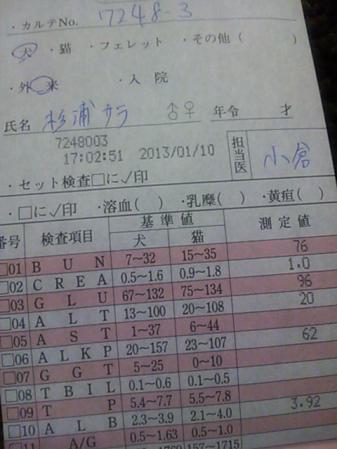 ・カルテNo. 7248-3
・犬 ・猫 ・フェレット ・その他 ( )
・外来 ・入院
氏名 杉浦 サラ ♂♀ 年令 才
7248003
17:02:51 2013/01/10
担当医 小倉
・セット検査□に✓印
・□に✓印 ・溶血( ) ・乳糜( ) ・黄疸( )
番号 検査項目 基準値 測定値
犬 猫
□01 BUN 7~32 15~35 76
□02 CREA 0.5~1.6 0.9~1.8 1.0
□03 GLU 67~132 75~134 96
□04 ALT 13~100 20~108 20
□05 AST 1~37 6~44
□06 ALKP 20~157 23~107 62
□07 GGT 5~25 0~10
□08 TBIL 0.1~0.6 0.1~0.5
□09 TP 5.4~7.7 5.5~7.8
□10 ALB 2.3~3.9 2.1~4.0 3.92
□11 A/G 0.5~1.63 0.5~1.0
157~1715